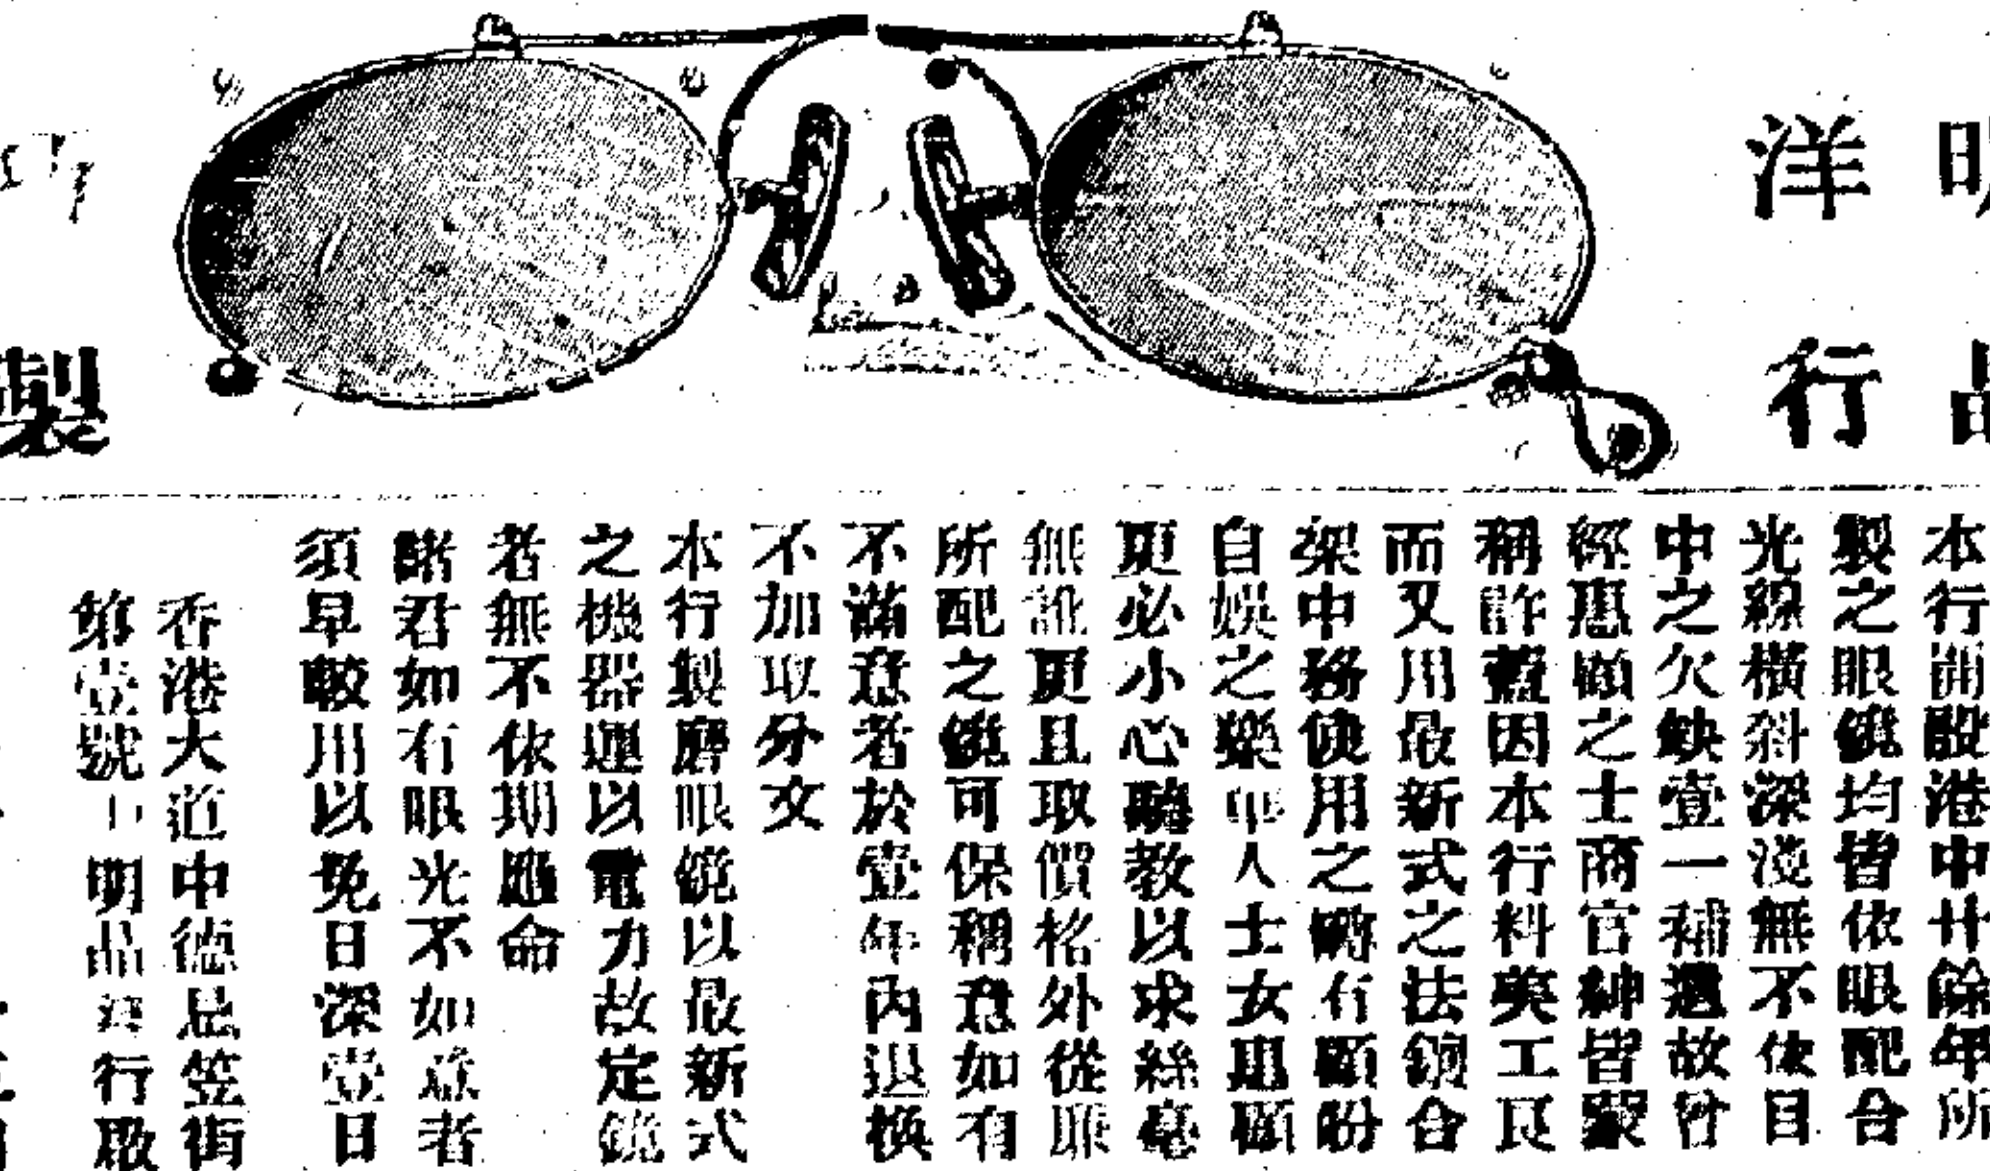 明晶
洋行
製
本行開設港中廿餘年所
製之眼鏡均皆依眼配合
光線橫斜深淺無不依目
中之欠缺壹一補還故曾
經惠顧之士商官紳皆蒙
稱許蓋因本行料美工良
而又用最新式之法鑲合
架中務使用之者有顧盼
自娛之樂年人士女惠顧
更必小心聽教以求絲毫
無訛更且取價格外從廉
所配之鏡可保稱意如有
不滿意者於壹年內退換
不加取分文
本行製磨眼鏡以最新式
之機器運以電力故定鏡
者無不依期應命
諸君如有眼光不如意者
須早較用以免日深壹日
香港大道中德忌笠街
第壹號 明晶洋行啟